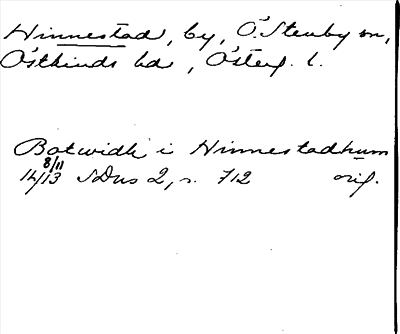 Hinnestad, by, Ö. Stenby sn,
Östkinds hd, Österg. l.
Botwidh i Hinnestadhum
8/11
1413 SDns 2, s. 712 orig.